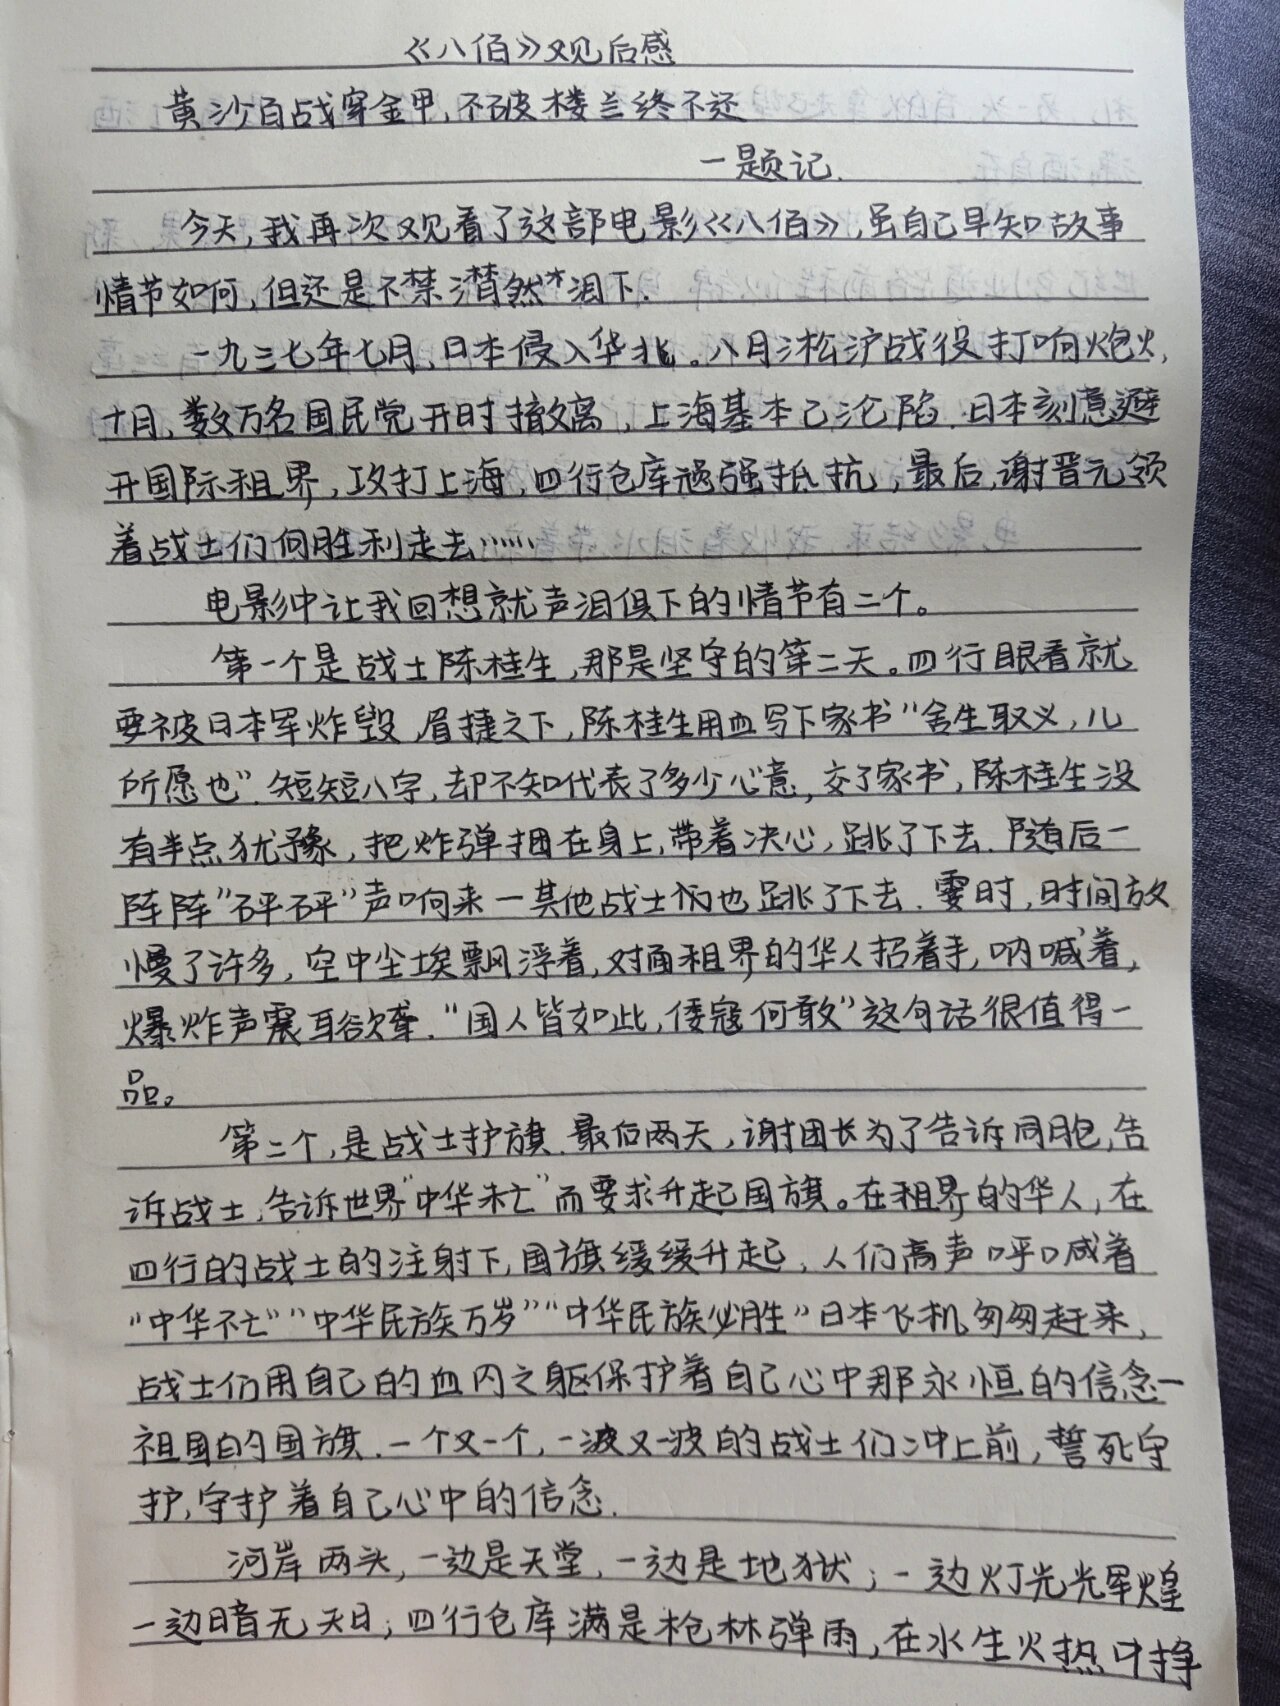 《八佰》观后感
黄沙百战穿金甲,不破楼兰终不还
一题记.
今天,我再次观看了这部电影《八佰》,虽自己早知故事
情节如何,但还是不禁潸然泪下.
一九三七年七月,日本侵入华北。八月淞沪战役打响炮火,
十月,数万名国民党开时撤离,上海基本已沦陷.日本刻意避
开国际租界,攻打上海,四行仓库强抵抗,最后,谢晋元领
着战士们向胜利走去……
电影中让我回想就声泪俱下的情节有二个。
第一个是战士陈桂生,那是坚守的第二天。四行眼看就
要被日本军炸毁,眉捷之下,陈桂生用血写下家书"舍生取义,儿
所愿也".短短八字,却不知代表了多少心意,交了家书,陈桂生没
有半点犹豫,把炸弹捆在身上,带着决心,跳了下去.随后一
阵阵"砰砰"声响来一其他战士们也跳了下去.霎时,时间放
慢了许多,空中尘埃飘浮着,对面租界的华人招着手,呐喊着,
爆炸声震耳欲聋."国人皆如此,倭寇何敢"这句话很值得一
品。
第二个,是战士护旗.最后两天,谢团长为了告诉同胞,告
诉战士,告诉世界"中华未亡"而要求升起国旗。在租界的华人,在
四行的战士的注射下,国旗缓缓升起,人们高声呼喊着
"中华不亡""中华民族万岁""中华民族必胜"日本飞机匆匆赶来,
战士们用自己的血肉之躯保护着自己心中那永恒的信念一
祖国的国旗.一个又一个,一波又一波的战士们冲上前,誓死守
护,守护着自己心中的信念.
河岸两头,一边是天堂,一边是地狱;一边灯光光辉煌
一边暗无天日;四行仓库满是枪林弹雨,在水生火热中挣